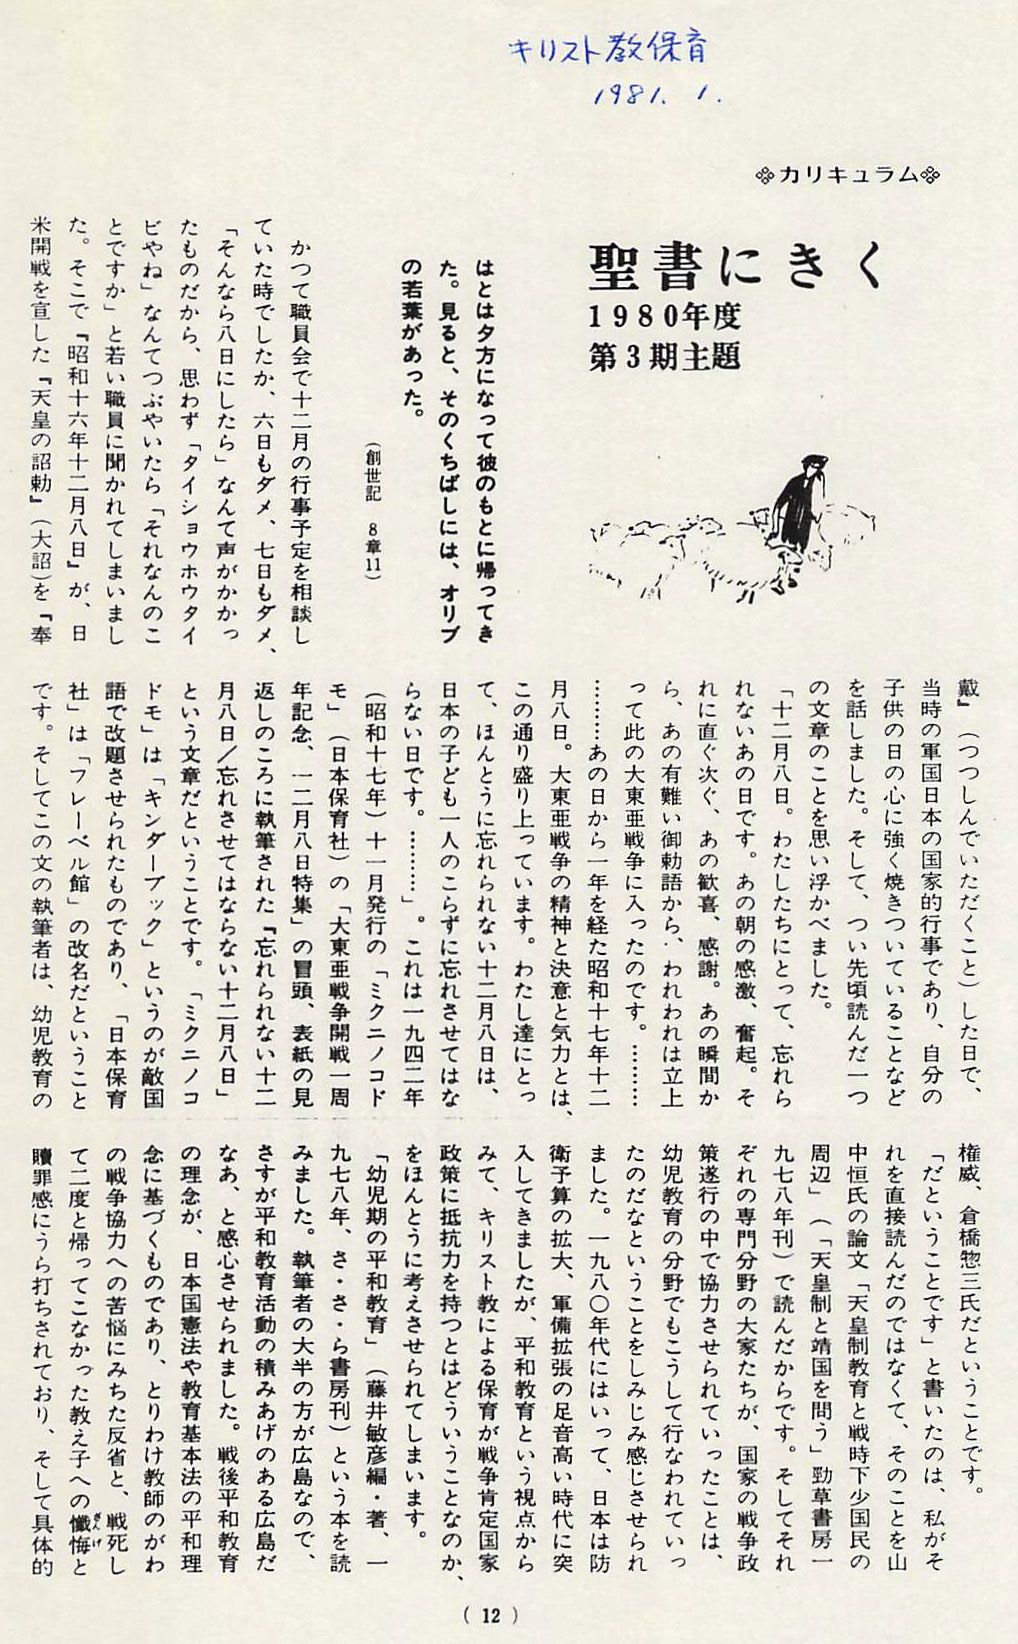 キリスト教保育
1981. 1.
カリキュラム
聖書にきく
1980年度
第3期主題
はとは夕方になって彼のもとに帰ってき
た。見ると、そのくちばしには、オリブ
の若葉があった。
（創世記　8章11）
かつて職員会で十二月の行事予定を相談し
ていた時でしたか、六日もダメ、七日もダメ、
「そんなら八日にしたら」なんて声がかかっ
たものだから、思わず「タイショウホウタイ
ビやね」なんてつぶやいたら「それなんのこ
とですか」と若い職員に聞かれてしまいまし
た。そこで『昭和十六年十二月八日』が、日
米開戦を宣した『天皇の詔勅』（大詔）を『奉
戴』（つつしんでいただくこと）した日で、
当時の軍国日本の国家的行事であり、自分の
子供の日の心に強く焼きついていることなど
を話しました。そして、つい先頃読んだ一つ
の文章のことを思い浮かべました。
「十二月八日。わたしたちにとって、忘れら
れないあの日です。あの朝の感激、奮起。そ
れに直ぐ次ぐ、あの歓喜、感謝。あの瞬間か
ら、あの有難い御勅語から、われわれは立上
って此の大東亜戦争に入ったのです。…………
………あの日から一年を経た昭和十七年十二
月八日。大東亜戦争の精神と決意と気力とは、
この通り盛り上っています。わたし達にとっ
て、ほんとうに忘れられない十二月八日は、
日本の子ども一人のこらずに忘れさせてはな
らない日です。………」。これは一九四二年
（昭和十七年）十一月発行の「ミクニノコド
モ」（日本保育社）の「大東亜戦争開戦一周
年記念、一二月八日特集」の冒頭、表紙の見
返しのころに執筆された『忘れられない十二
月八日/忘れさせてはならない十二月八日」
という文章だということです。「ミクニノコ
ドモ」は「キンダーブック」というのが敵国
語で改題させられたものであり、「日本保育
社」は「フレーベル館」の改名だということ
です。そしてこの文の執筆者は、幼児教育の
権威、倉橋惣三氏だということです。
「だということです」と書いたのは、私がそ
れを直接読んだのではなくて、そのことを山
中恒氏の論文「天皇制教育と戦時下少国民の
周辺」（「天皇制と靖国を問う」勁草書房一
九七八年刊）で読んだからです。そしてそれ
ぞれの専門分野の大家たちが、国家の戦争政
策遂行の中で協力させられていったことは、
幼児教育の分野でもこうして行なわれていっ
たのだなということをしみじみ感じさせられ
ました。一九八〇年代にはいって、日本は防
衛予算の拡大、軍備拡張の足音高い時代に突
入してきましたが、平和教育という視点から
みて、キリスト教による保育が戦争肯定国家
政策に抵抗力を持つとはどういうことなのか、
をほんとうに考えさせられてしまいます。
「幼児期の平和教育」（藤井敏彦編・著、一
九七八年、さ・さ・ら書房刊）という本を読
みました。執筆者の大半の方が広島なので、
さすが平和教育活動の積みあげのある広島だ
なあ、と感心させられました。戦後平和教育
の理念が、日本国憲法や教育基本法の平和理
念に基づくものであり、とりわけ教師のがわ
の戦争協力への苦悩にみちた反省と、戦死し
て二度と帰ってこなかった教え子への懺悔と
贖罪感にうら打ちされており、そして具体的
（12）